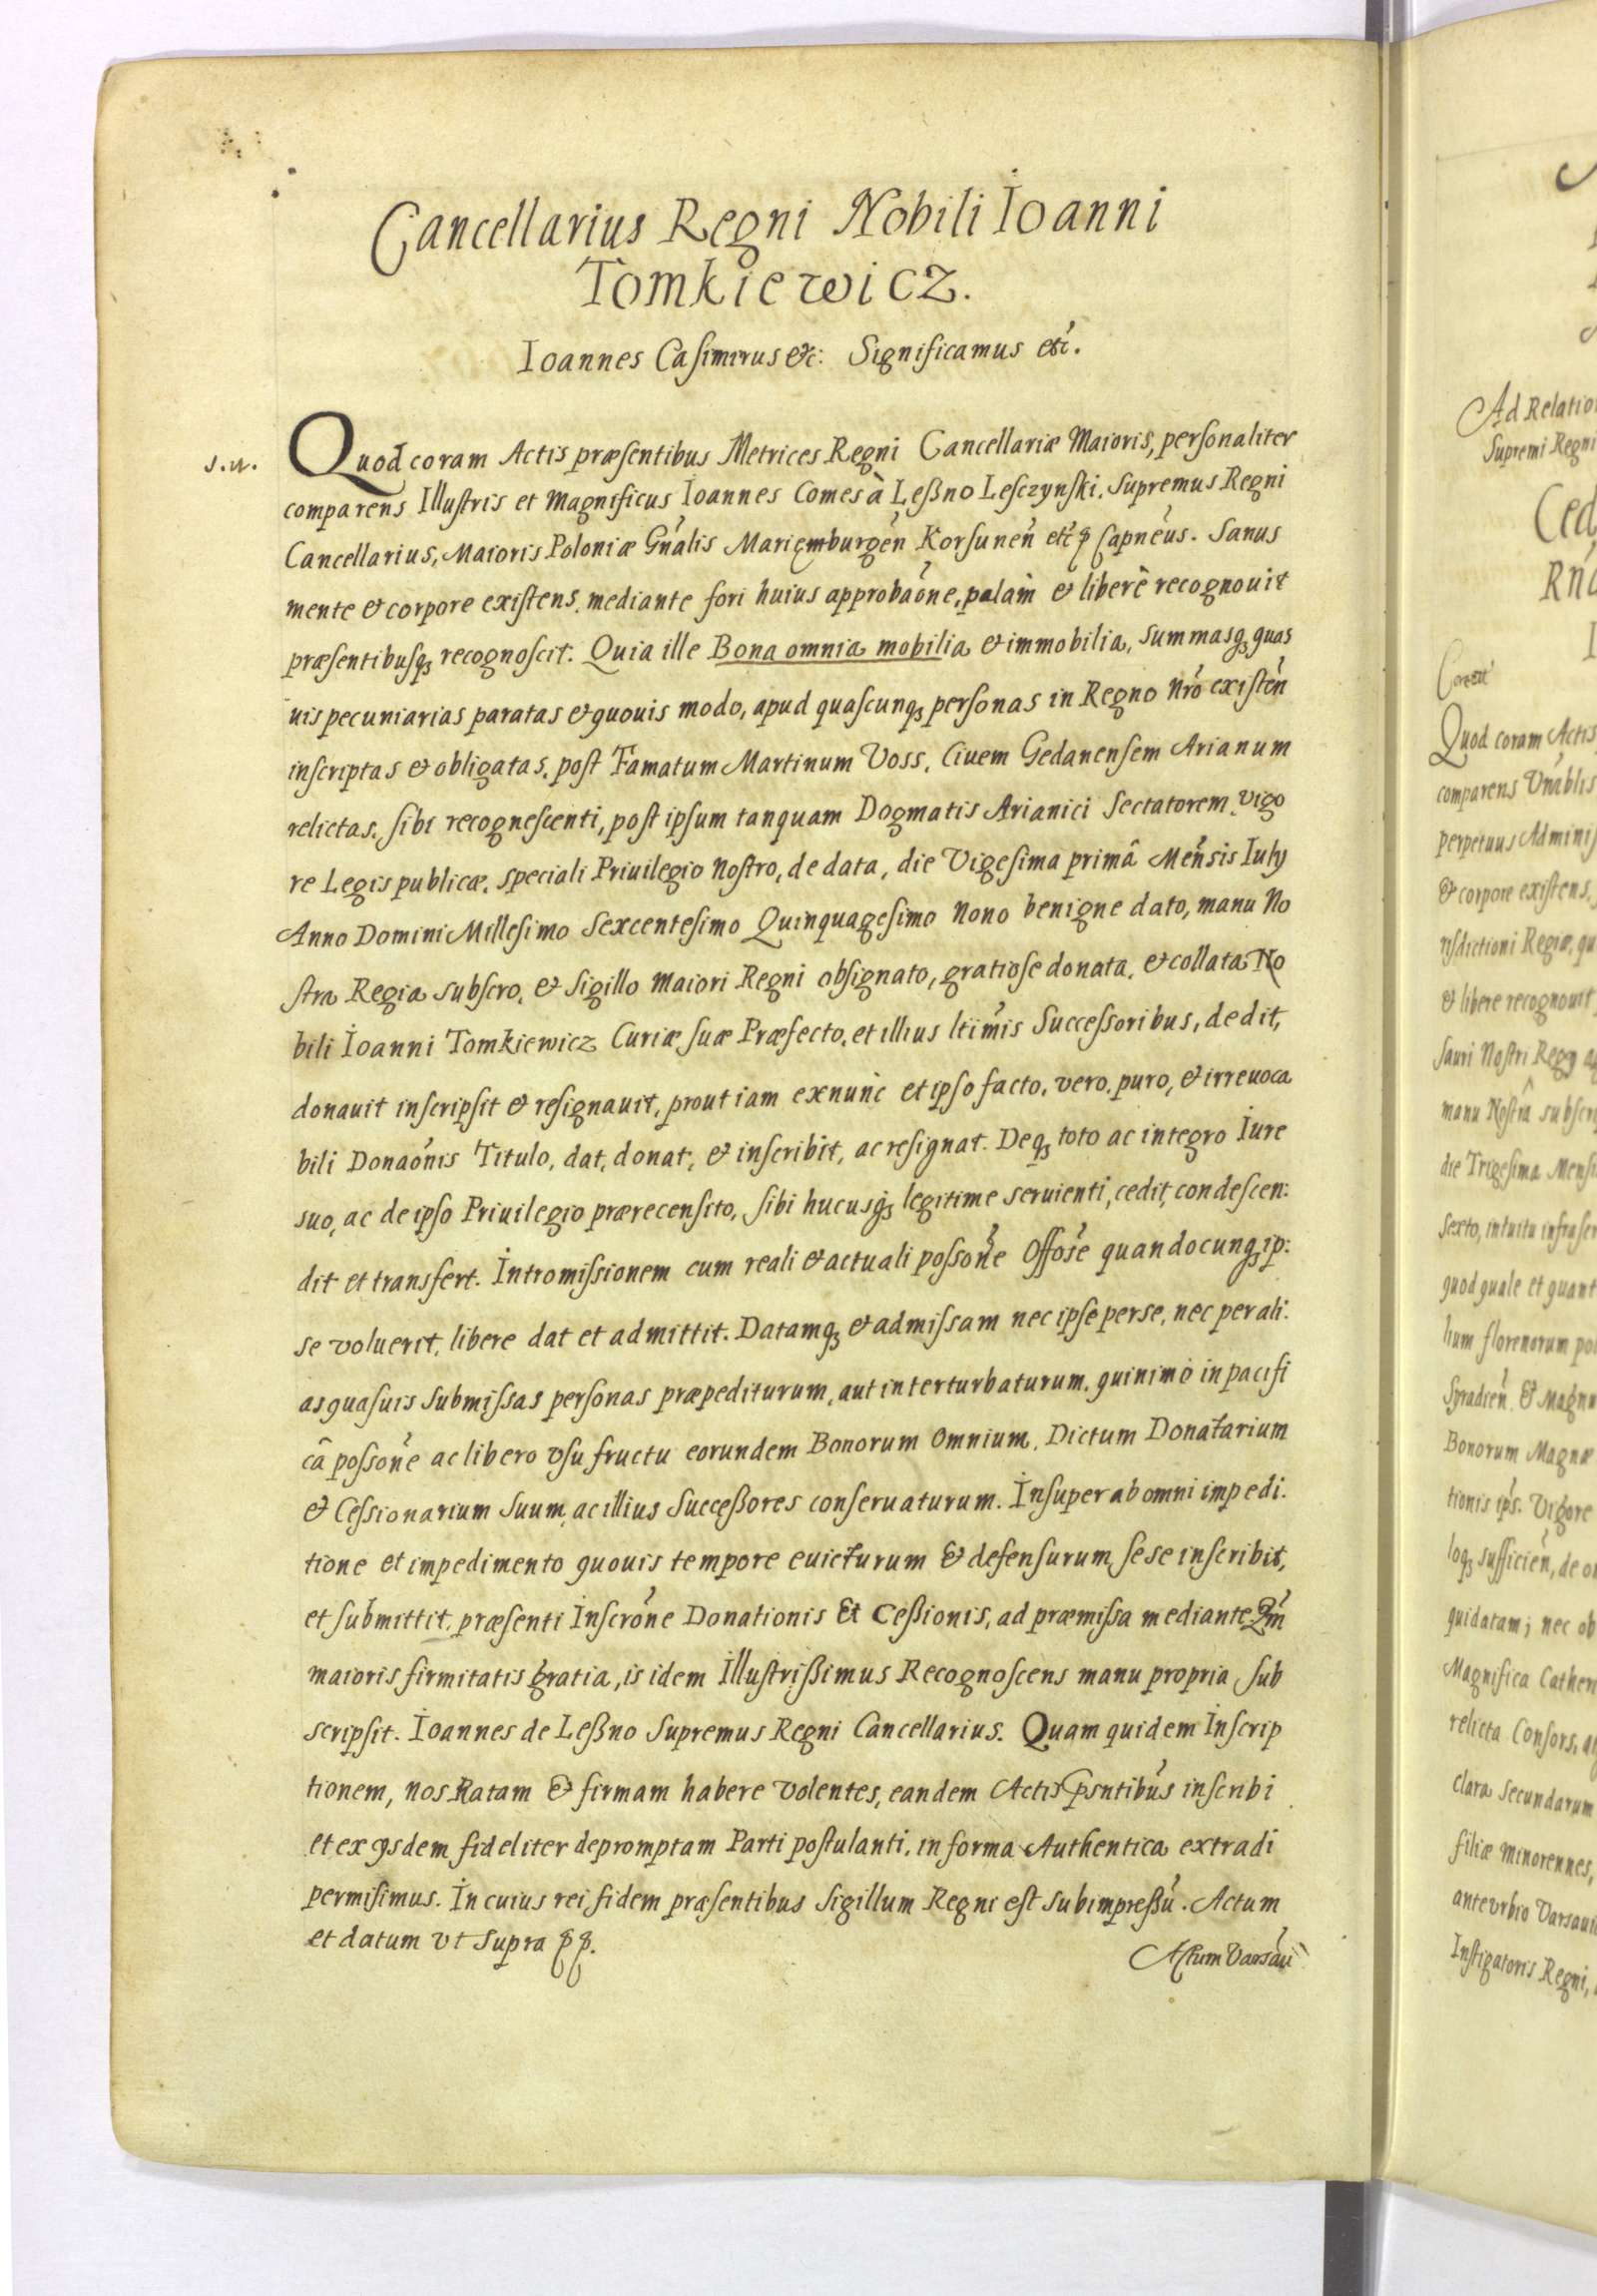 Cancellarius Regni Nobili Ioanni
Tomkiewicz.
Ioannes Casimirus etc: Significamus etc.
s.n.
Quod coram Actis præsentibus Metrices Regni Cancellariæ Maioris, personaliter
comparens Illustris et Magnificus Ioannes Comes à Leßno Lesczynski, Supremus Regni
Cancellarius, Maioris Poloniæ Gnãlis Mariemburgen̄ Korsunen̄ etc Capneus. Sanus
mente & corpore existens, mediante fori huius approbaõne, palàm & liberè recognouit
præsentibusq3 recognoscit: Quia ille Bona omnia mobilia & immobilia, summasq3 quas
uis pecuniarias paratas & quouis modo, apud quascunq3 personas in Regno nrõ existen̄
inscriptas & obligatas, post Famatum Martinum Voss, Ciuem Gedanensem Arianum
relictas, sibi recognescenti, post ipsum tanquam Dogmatis Arianici Sectatorem, vigo
re Legis publicæ, speciali Priuilegio Nostro, de data, die Vigesima primâ Mensis Iulij
Anno Domini Millesimo Sexcentesimo Quinquagesimo Nono benigne dato, manu No
stra Regia subscro, & Sigillo Maiori Regni obsignato, gratiose donata, & collata No
bili Ioanni Tomkiewicz Curiæ suæ Præfecto, et illius ltimis Successoribus, dedit,
donauit inscripsit & resignauit, prout iam exnunc et ipso facto, vero, puro, & irreuoca
bili Donaõnis Titulo, dat, donat, & inscribit, ac resignat. Deq3 toto ac integro Iure
suo, ac de ipso Priuilegio prærecensito, sibi hucusq3 legitime seruienti, cedit, condescen:
dit et transfert. Intromissionem cum reali & actuali possone Offose quandocunq3 ip:
se voluerit, libere dat et admittit. Datamq3 & admissam nec ipse per se, nec per ali:
as quasuis submissas personas præpediturum, aut interturbaturum, quinimo in pacifi
câ possone ac libero vsu fructu eorundem Bonorum Omnium, Dictum Donatarium
& Cessionarium Suum, ac illius Succeßores conseruaturum. Insuper ab omni impedi:
tione et impedimento quouis tempore euicturum & defensurum, sese inscribit,
et submittit, præsenti Inscrone Donationis Et Ceßionis, ad præmissa mediante. Qm̄
maioris firmitatis gratia, is idem Illustrißimus Recognoscens manu propria sub
scripsit. Ioannes de Leßno Supremus Regni Cancellarius. Quam quidem Inscrip
tionem, nos Ratam & firmam habere volentes, eandem Actis psntibus inscribi
et ex ijsdem fideliter depromptam Parti postulanti, in forma Authentica extradi
permisimus. In cuius rei fidem præsentibus Sigillum Regni est subimpreßu. Actum
et datum vt supra
Actum Varsau
Ad Relatio
Supremi Regni
Quod coram Actis
comparens
perpetuus Adminis
& corpore existens,
risdictioni Regiæ, qu
& libere recognouit
sauri Nostri Regij
manu Nostra subscri
die Trigesima Mensi
sexto, intuitu infrascr
quod quale et quant
lium florenorum pol
& Magnu
Bonorum Magnæ
tionis ips. Vigore
loq3 sufficien̄, de o
quidatam; nec ob
Magnifica Cathen
relicta Consors, a
clara Secundarum
filiæ minorennes,
ante vrbio Varsaui
Instigatoris Regni,